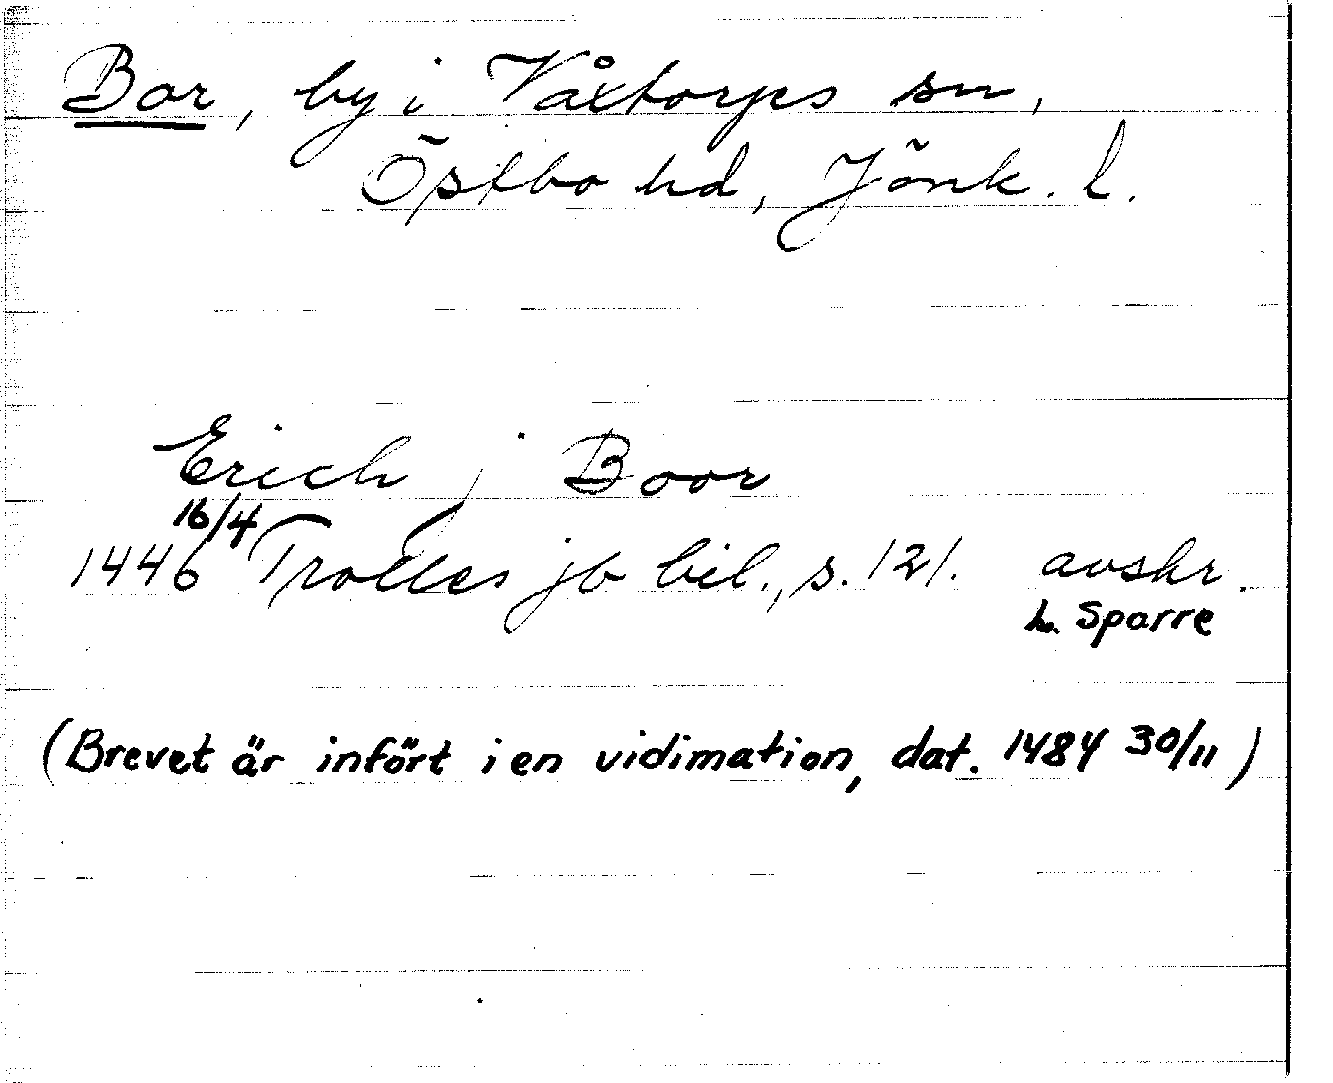 Bor, by i Våxtorps sn,
Östbo hd, Jönk. l.
Erich j Boor
16/4
1446 Trolles jb bil., s. 121. avskr.
L. Sparre
(Brevet är infört i en vidimation, dat. 1484 30/11)